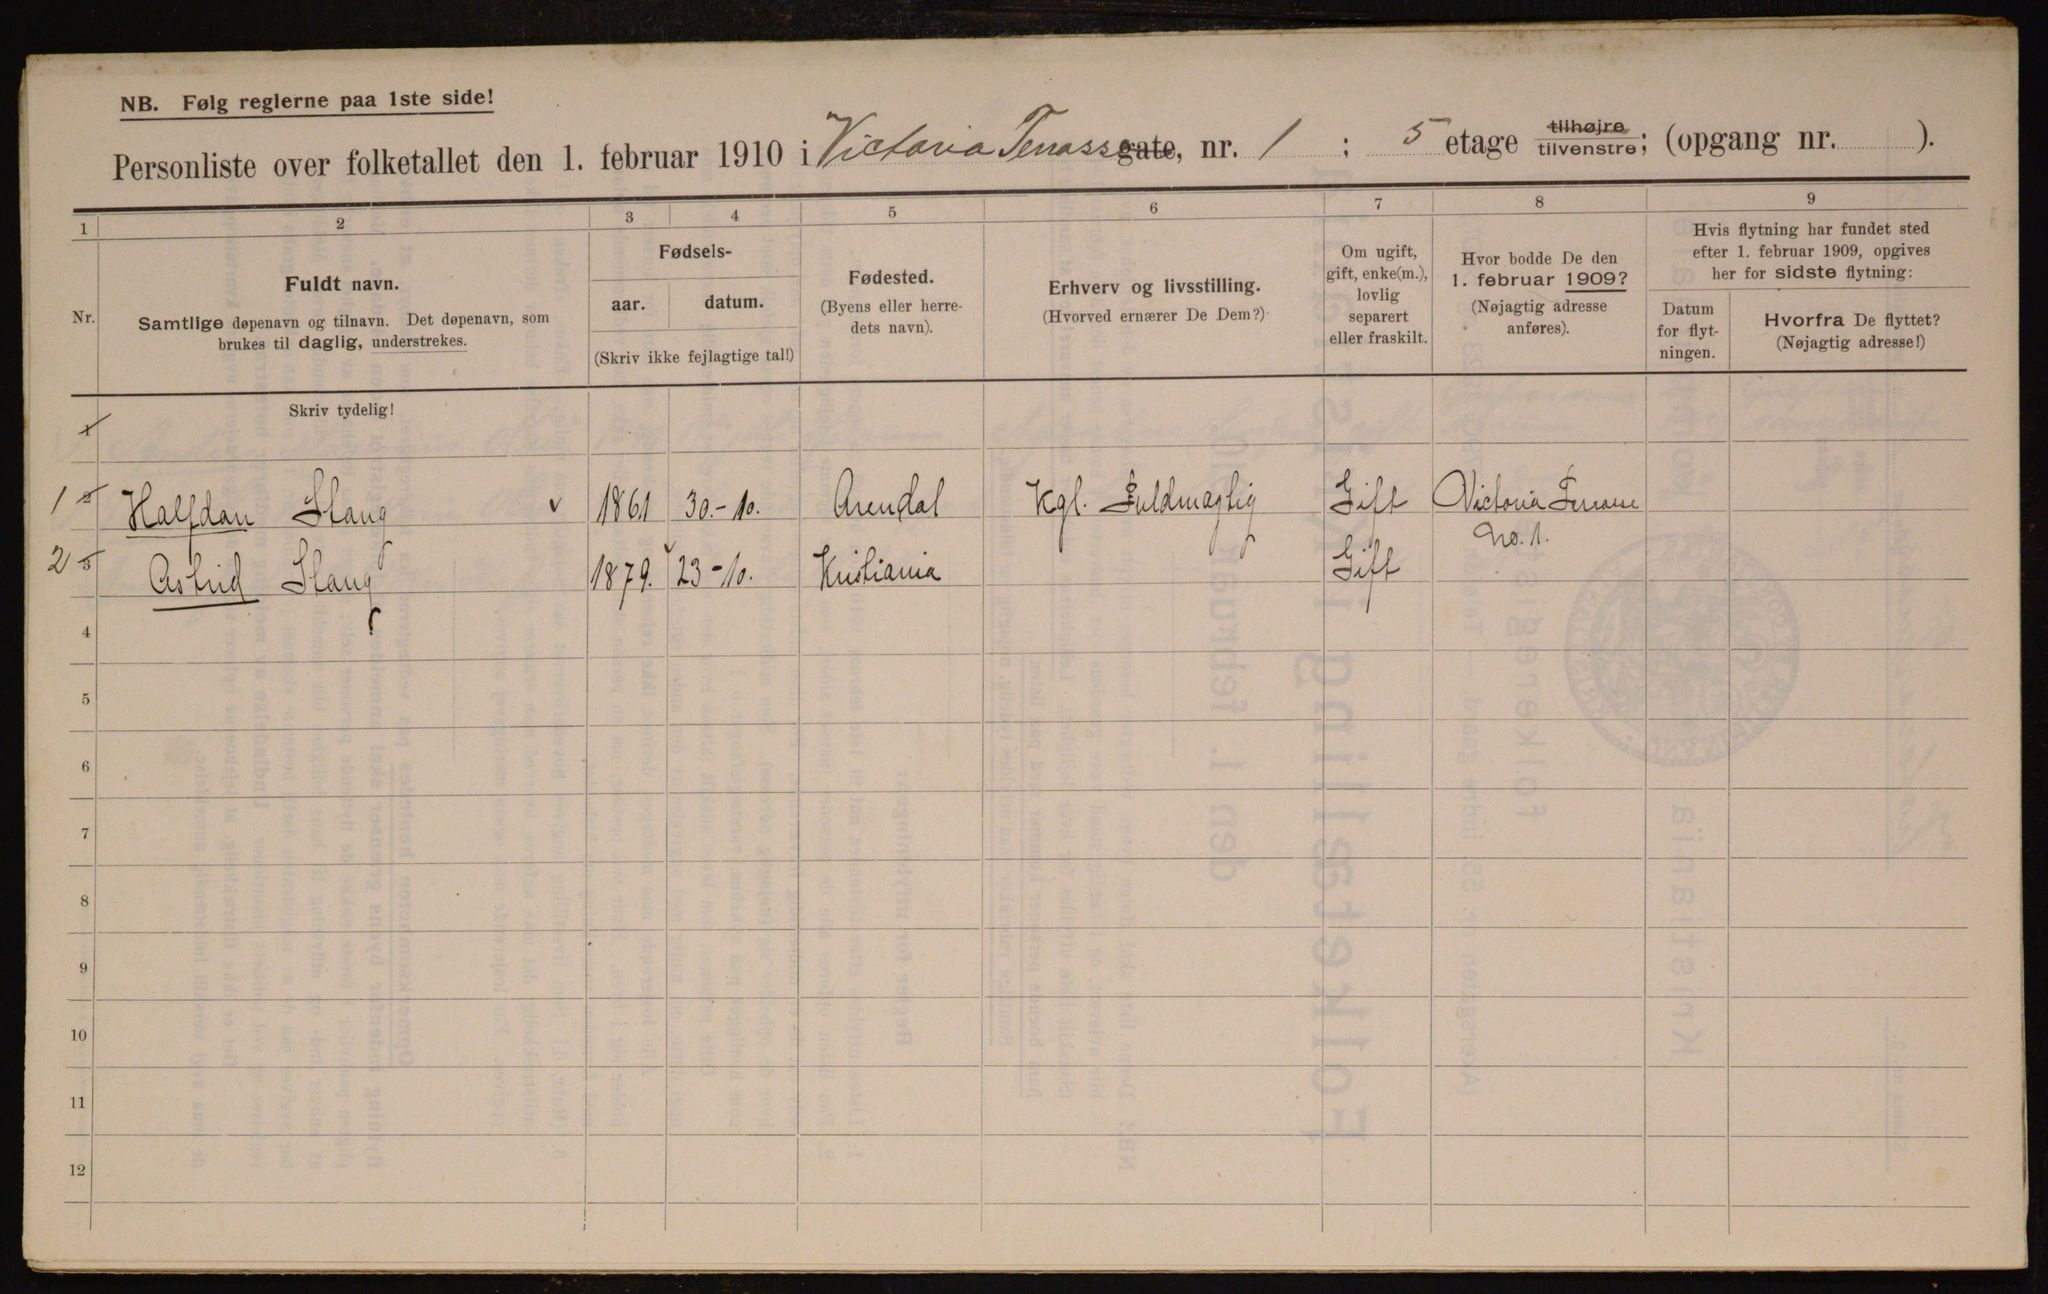 NB. Følg reglerne paa 1ste side!
Personliste over folketallet den 1. februar 1910 i Victoria Terrasse gate, nr. 1 ; 5 etage tilhøjre tilvenstre; (opgang nr. ).
1 2 3 4 5 6 7 8 9
Nr.
Fuldt navn.
Samtlige døpenavn og tilnavn. Det døpenavn, som
brukes til daglig, understrekes.
Fødsels-
aar. datum.
(Skriv ikke fejlagtige tal!)
Fødested.
(Byens eller herre-
dets navn).
Erhverv og livsstilling.
(Hvorved ernærer De Dem?)
Om ugift,
gift, enke(m.),
lovlig
separert
eller fraskilt.
Hvor bodde De den
1. februar 1909?
(Nøjagtig adresse
anføres).
Hvis flytning har fundet sted
efter 1. februar 1909, opgives
her for sidste flytning:
Datum
for flyt-
ningen.
Hvorfra De flyttet?
(Nøjagtig adresse!)
Skriv tydelig!
1
1 2 Halfdan Stang v 1861 30.-10. Arendal Kgl. Fuldmægtig Gift Victoria Terrasse
No. 1.
2 3 Astrid Stang 1879. 23-10. Kristiania Gift
4
5
6
7
8
9
10
11
12